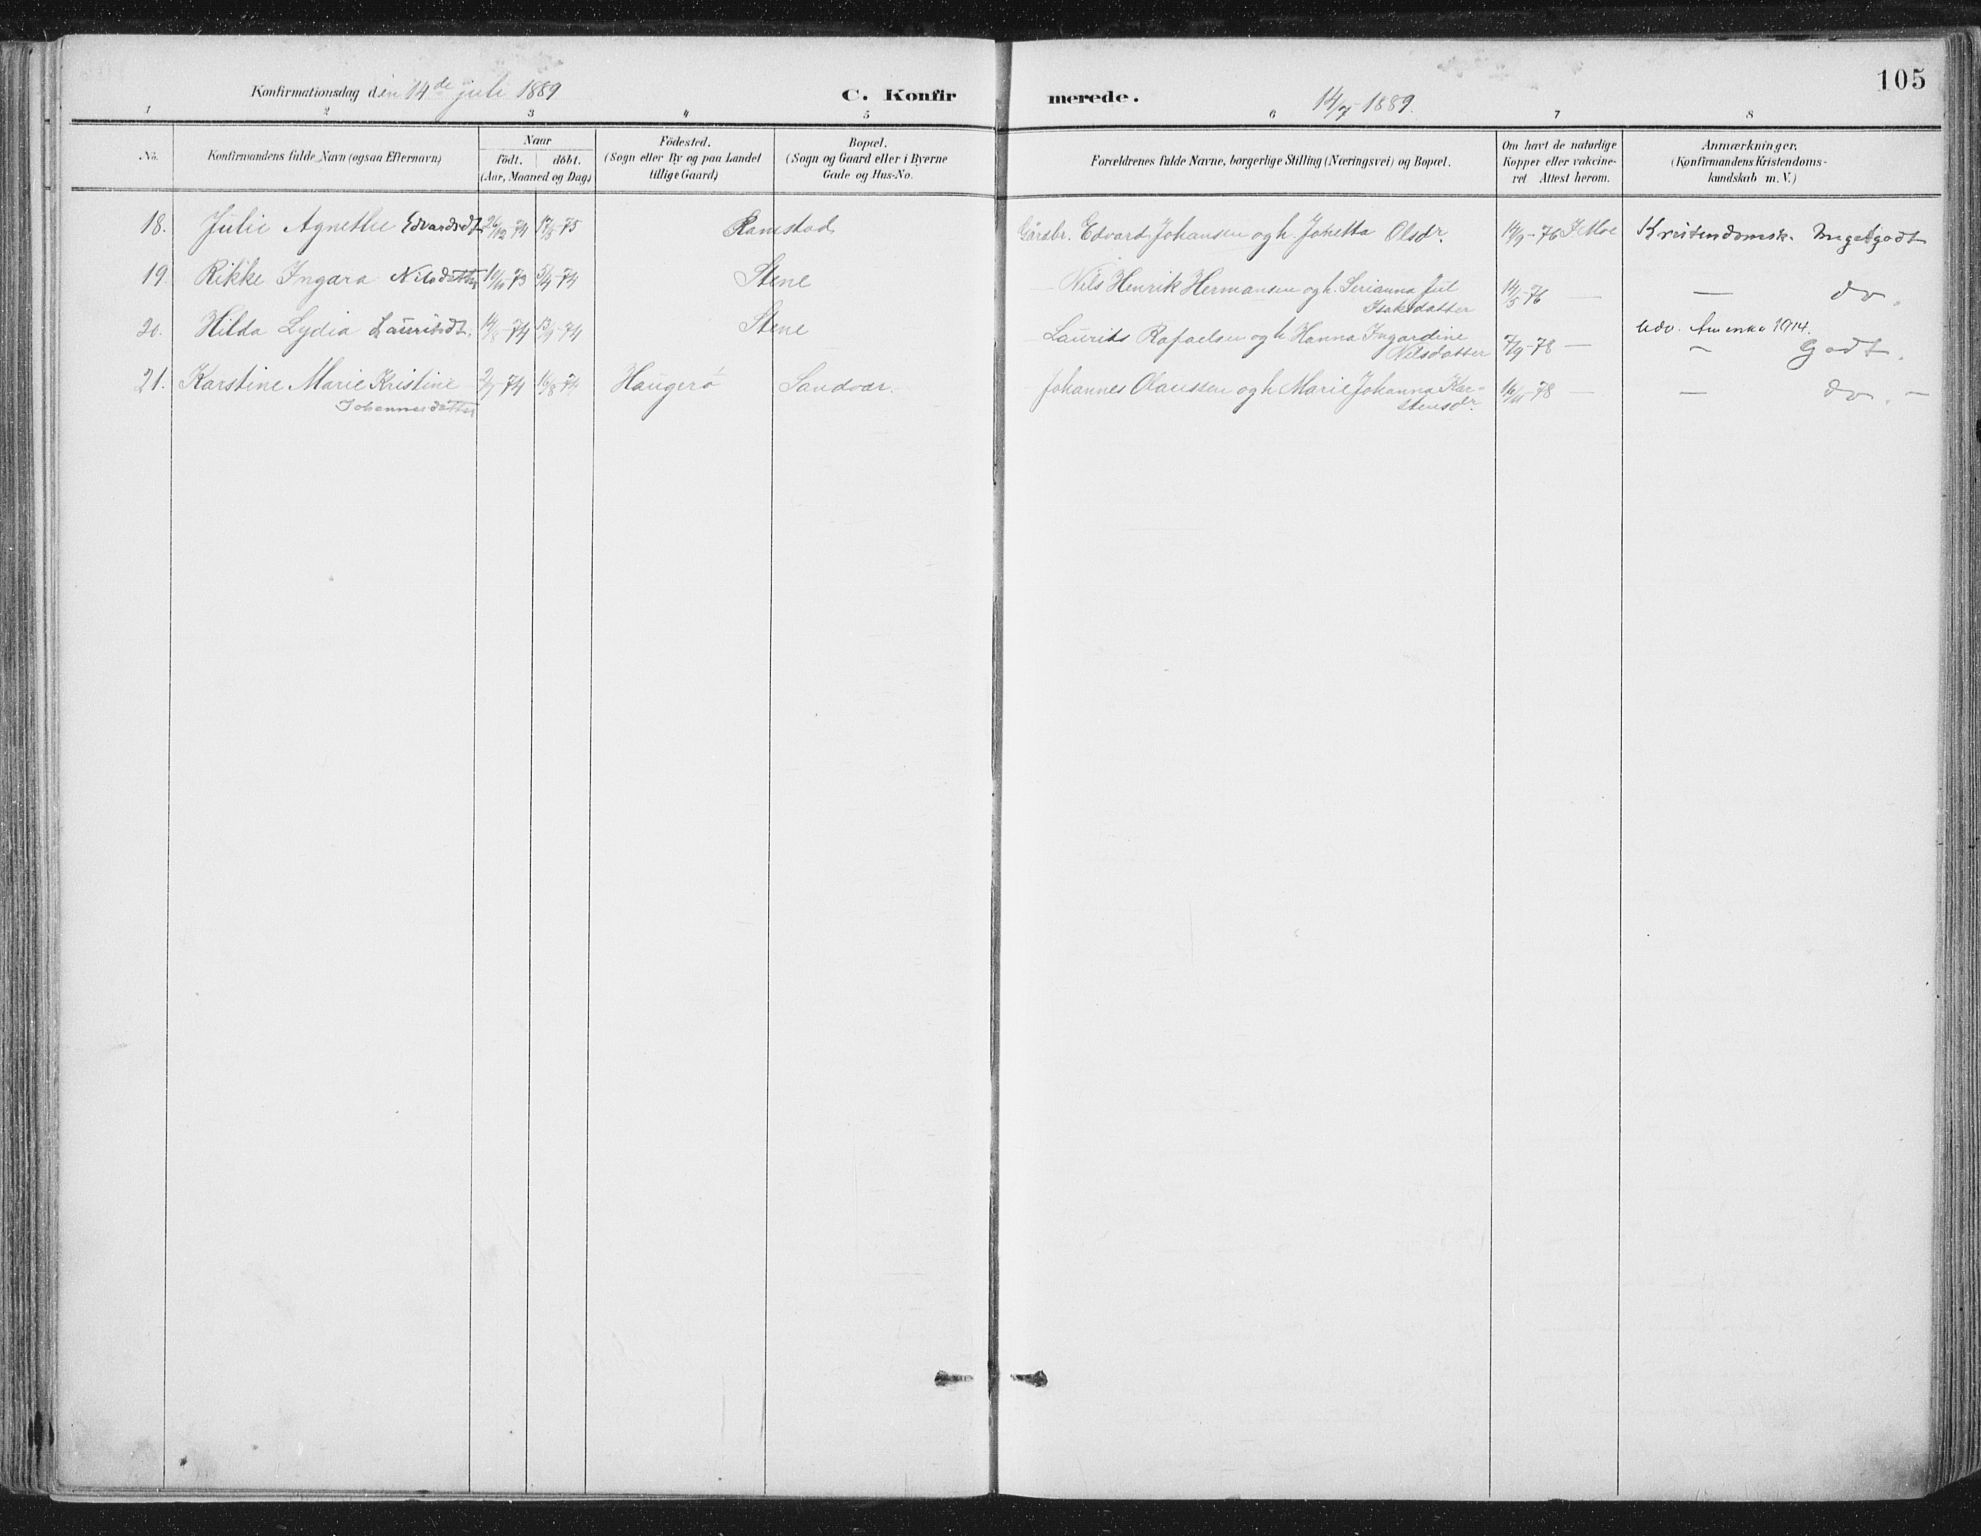 105
Konfirmationsdag den 14de juli 1889
C. Konfir
merede.
14/7 1889.
1 2 3 4 5 6 7 8
No.
Konfirmandens fulde Navn (ogsaa Efternavn)
Naar
födt. döbt.
(Aar, Maaned og Dag)
Födested.
(Sogn eller By og paa Landet
tillige Gaard)
Bopæl.
(Sogn og Gaard eller i Byerne
Gade og Hus-No.
Forældrenes fulde Navne, borgerlige Stilling (Næringsvei) og Bopæl.
Om havt de naturlige
Kopper eller vakcine-
ret Attest herom.
Anmærkninger.
(Konfirmandens Kristendoms-
kundskab m. V.)
18. Julie Agnethe Edvardsdt. 26/12-74 -75 Ramstad Gårdbr. Edvard Johansen og h. Johetta Olsdr. 14/9-76 Kristendomsk. Megetgodt
19. Rikke Ingara Nilsdatter 10/10 73 5/4-74 Stene - Nils Henrik Hermansen og h. Serianna Jul
Isaksdatter 14/5 76 — — do.
20. Hilda Lydia Lauritsdt. 14/8-74 13/9-74 Stene - Laurits Rafaelsen og h. Hanna Ingardine
Nilsdatter 7/9-78 —
Udv. Amerika 1914.
- Godt.
21. Karstine Marie Kristine
Johannesdatter 2/7 74 16/8 74 Haugerø Sandvær. - Johannes Olaussen og h. Marie Johanna Kar-
stensdr. 16/11-78 — — do. -